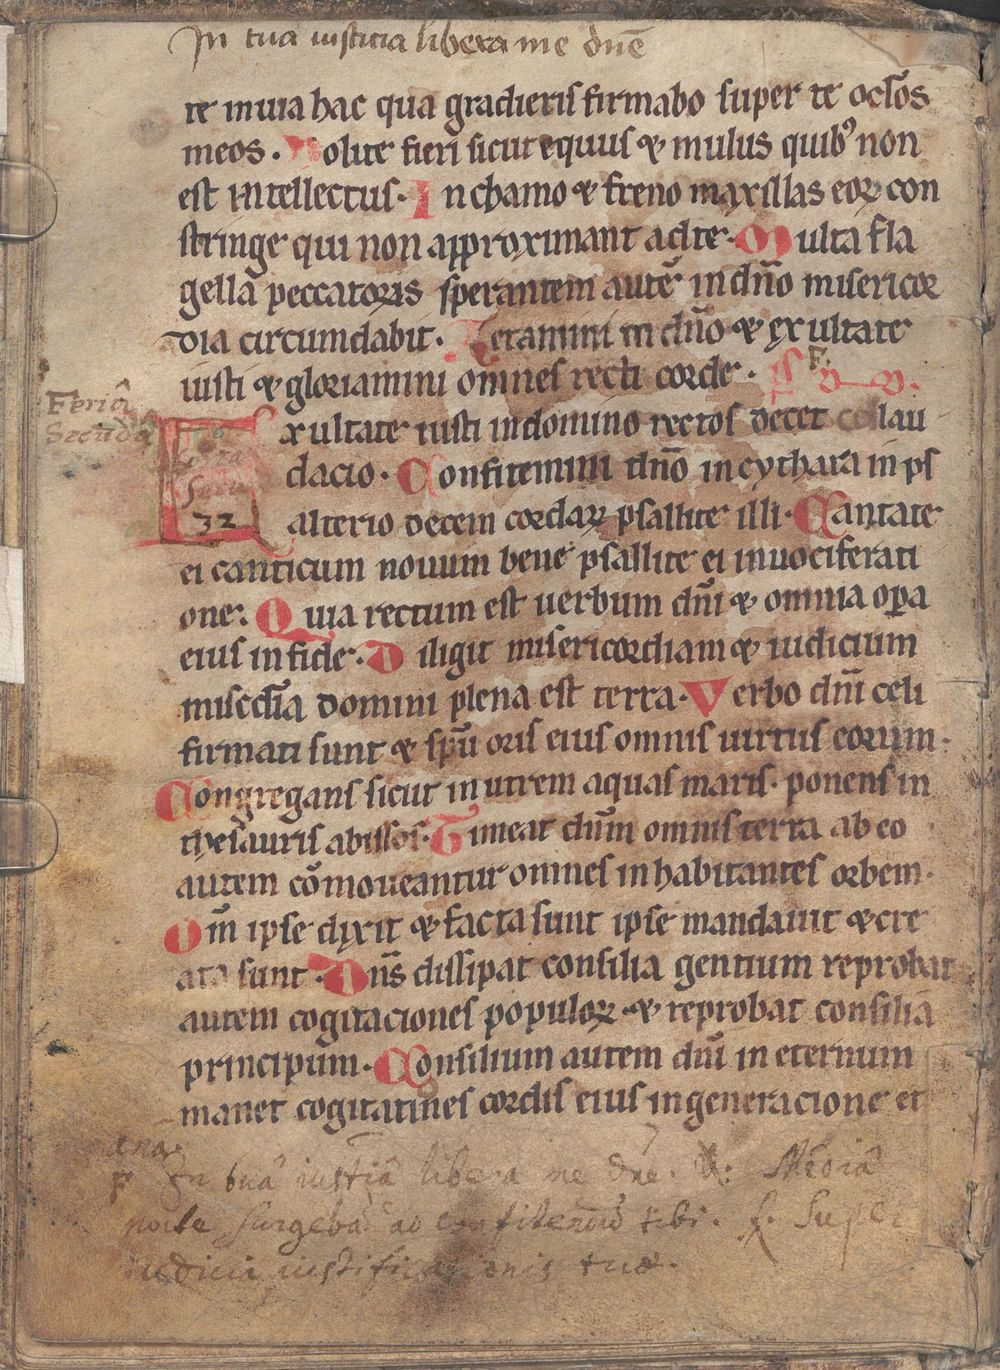 In tua iusticia libera me dnē
te in uia hac qua gradieris firmabo super te oclōs
meos. Nolite fieri sicut equus & mulus quibꝰ non
est intellectus. In chamo & freno maxillas eoꝝ con
stringe qui non approximant ad te. Multa fla
gella peccatoris sperantem autē in dn̄o misericor
dia circumdabit. Letamini in dn̄o & exultate
iusti & gloriamini omnes recti corde.
Feria
Secūda
Exultate iusti in domino rectos decet collau
dacio. Confitemini dn̄o in cythara in ps
32
alterio decem cordaꝝ psallite illi. Cantate
ei canticum nouum bene psallite ei in uociferati
one. Quia rectum est uerbum dn̄i & omnia opa
eius in fide. Diligit misericordiam & iudicium
miscd̄ia domini plena est terra. Verbo dn̄i celi
firmati sunt & spū oris eius omnis uirtus eorum.
Congregans sicut in utrem aquas maris. ponens in
thesauris abissos. Timeat dn̄m omnis terra ab eo
autem cōmoueantur omnes inhabitantes orbem.
Qm̄ ipse dixit & facta sunt ipse mandauit & cre
ata sunt. Dn̄s dissipat consilia gentium reprobat
autem cogitaciones populoꝝ & reprobat consilia
principum. Consilium autem dn̄i in eternum
manet cogitatines cordis eius in generacione et
In tua iustitiā libera me Dne. Mediā
nocte surgebā ad confitendū tibi. Super
iudicia iustificationis tuæ.